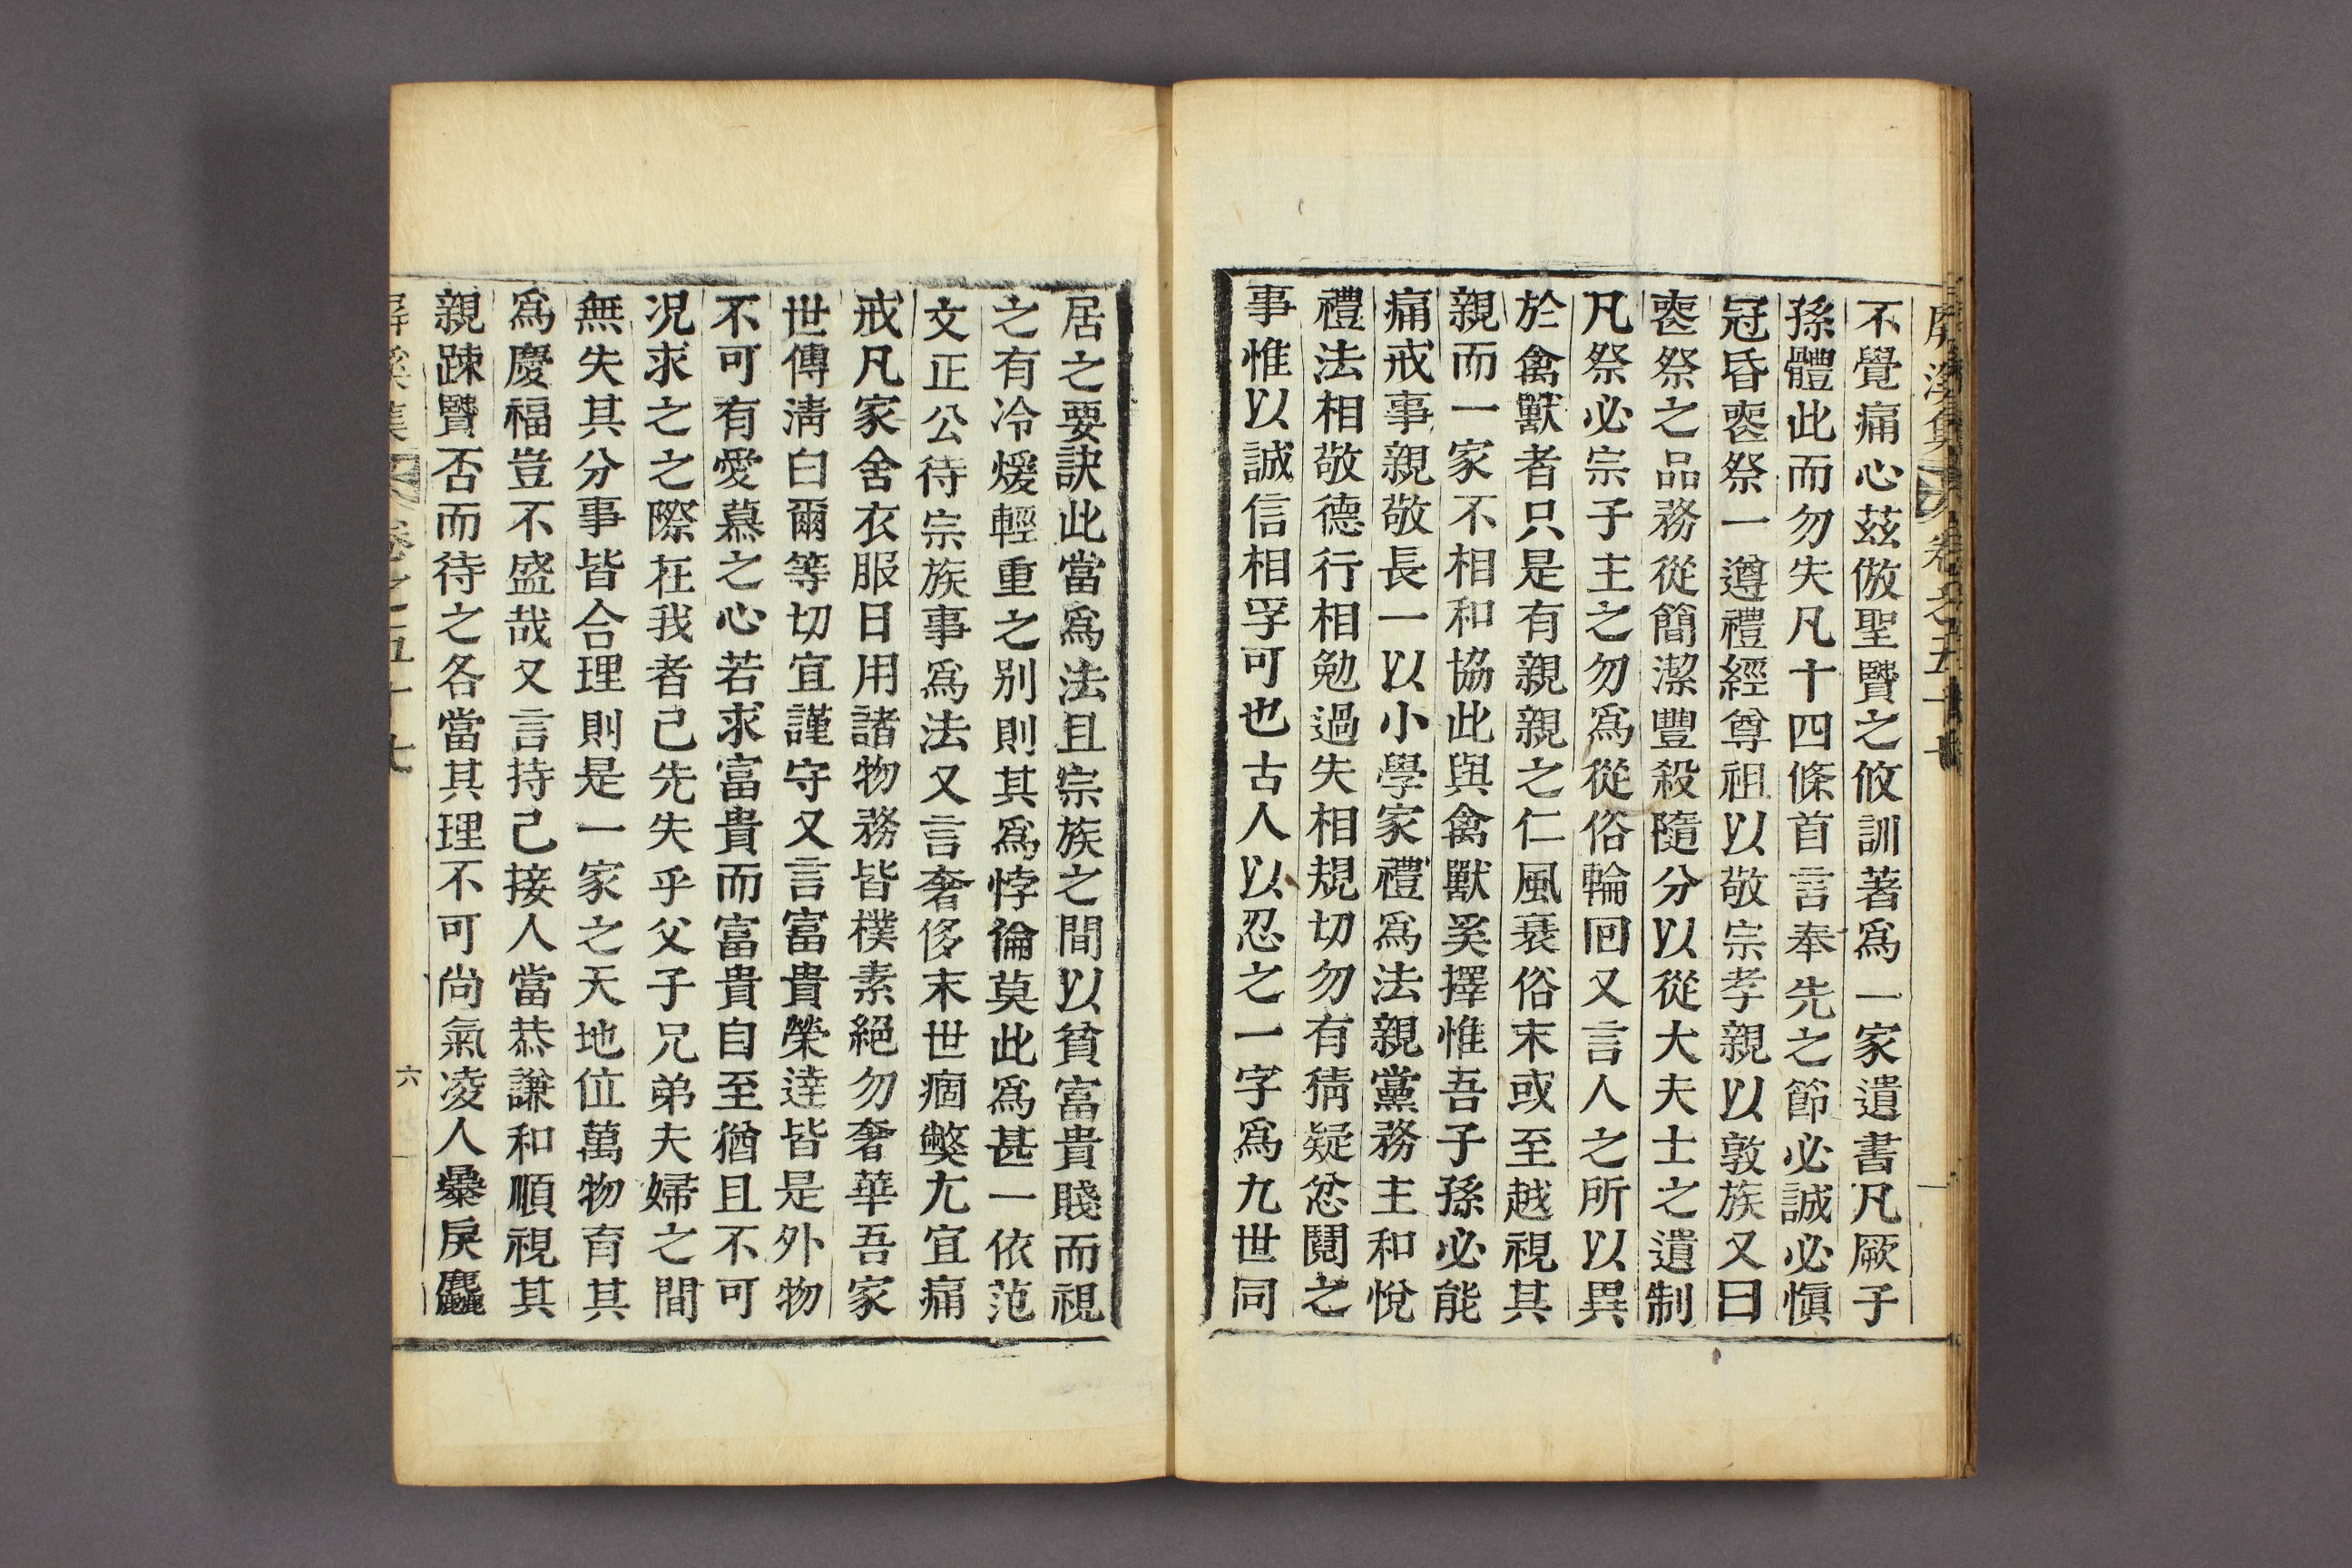 屛溪集 卷之五十七
不覺痛心玆倣聖賢之攸訓著爲一家遺書凡厥子
孫體此而勿失凡十四條首言奉先之節必誠必愼
冠昏喪祭一遵禮經尊祖以敬宗孝親以敦族又曰
喪祭之品務從簡潔豐殺隨分以從大夫士之遺制
凡祭必宗子主之勿爲從俗輪回又言人之所以異
於禽獸者只是有親親之仁風衰俗末或至越視其
親而一家不相和協此與禽獸奚擇惟吾子孫必能
痛戒事親敬長一以小學家禮爲法親黨務主和悅
禮法相敬德行相勉過失相規切勿有猜疑忿鬩之
事惟以誠信相孚可也古人以忍之一字爲九世同
居之要訣此當爲法且宗族之間以貧富貴賤而視
之有冷煖輕重之别則其爲悖倫莫此爲甚一依范
文正公待宗族事爲法又言奢侈末世痼弊尤宜痛
戒凡家舍衣服日用諸物務皆樸素絕勿奢華吾家
世傳淸白爾等切宜謹守又言富貴榮達皆是外物
不可有愛慕之心若求富貴而富貴自至猶且不可
况求之之際在我者己先失乎父子兄弟夫婦之間
無失其分事皆合理則是一家之天地位萬物育其
爲慶福豈不盛哉又言持己接人當恭謙和順視其
親踈賢否而待之各當其理不可尚氣凌人暴戾麤
屛溪集 卷之五十七 六